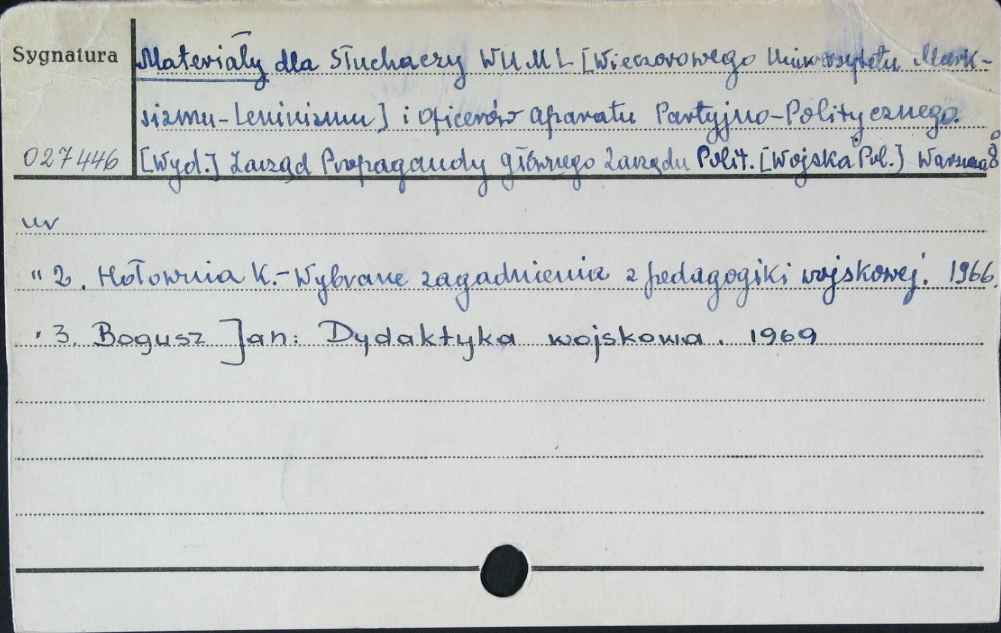 Sygnatura
Materiały dla Słuchaczy WUML [Wieczorowego Uniwersytetu Mark-
sizmu-Leninizmu] i oficerów aparatu Partyjno-Politycznego.
027446 [Wyd.] Zarząd Propagandy Głównego Zarządu Polit. [Wojska Pol.] Warszawa 8°
nr
" 2. Hołownia K.- Wybrane zagadnienia z pedagogiki wojskowej. 1966.
" 3. Bogusz Jan: Dydaktyka wojskowa. 1969